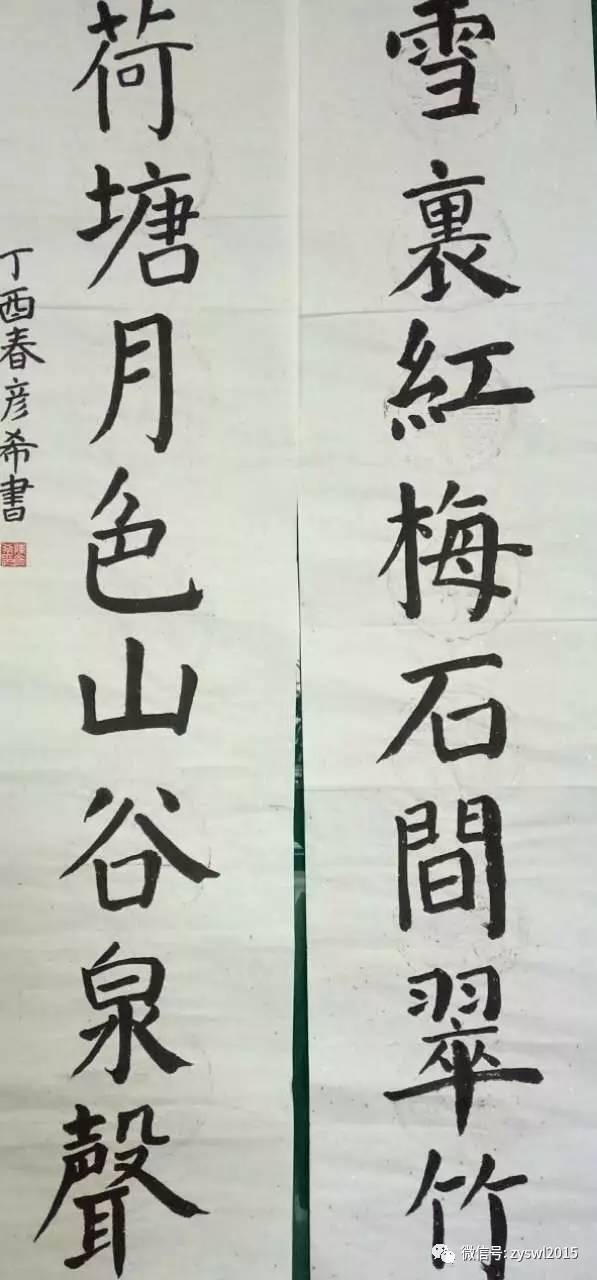 雪裏紅梅石間翠竹
荷塘月色山谷泉聲
丁酉春彦希書
微信号: zyswl2015